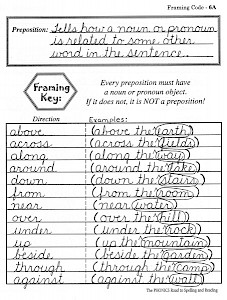 Framing Code - 6A
Preposition: Tells how a noun or pronoun
is related to some other
word in the sentence.
Framing
Key:
Every preposition must have
a noun or pronoun object.
If it does not, it is NOT a preposition!
Direction Examples:
above (above the earth)
across (across the fields)
along (along the way)
around (around the lake)
down (down the stairs)
from (from the room)
near (near water)
over (over the hill)
under (under the rock)
up (up the mountain)
beside (beside the garden)
through (through the camp)
against (against the wall)
The PHONICS Road to Spelling and Reading